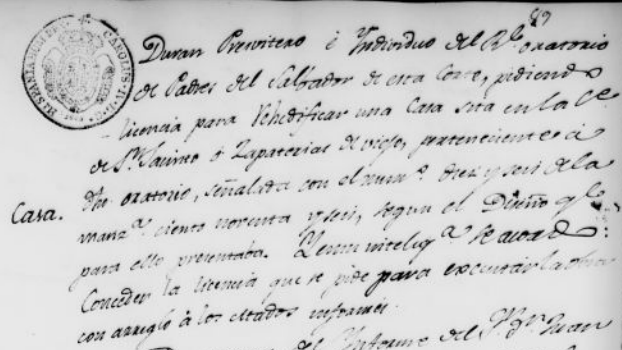 89
Duran Presvitero è Yndividuo del Rl. oratorio
de Padres del Salvador de esta Corte, pidiendo
licencia para Rehedificar una Casa sita en la Ce.
de Sn. Jacinto ò Zapaterias de viejo, perteneciente a
dho oratorio, señalada con el num.o diez y seis de la
Casa.
manz.a ciento noventa y seis, segun el Diseño q.e
para ello presentaba. Y en vista se acordò:
Conceder la licencia que se pide para executar la obra
con arreglo à los citados informes.
el Informe del Sr. Dn. Juan